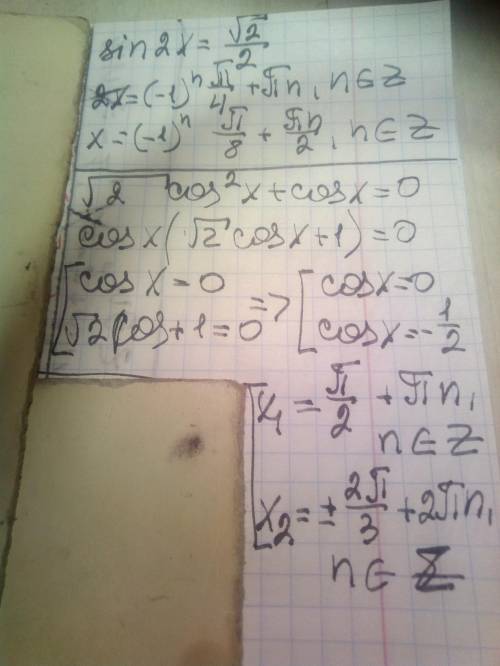 sin 2x = √2/2
2x = (-1)^n π/4 + πn, n ∈ Z
x = (-1)^n π/8 + πn/2, n ∈ Z
√2 cos²x + cos x = 0
cos x (√2 cos x + 1) = 0
[ cos x = 0 => [ cos x = 0
√2 cos + 1 = 0 cos x = -1/2
[ x₁ = π/2 + πn,
n ∈ Z
x₂ = ± 2π/3 + 2πn,
n ∈ Z